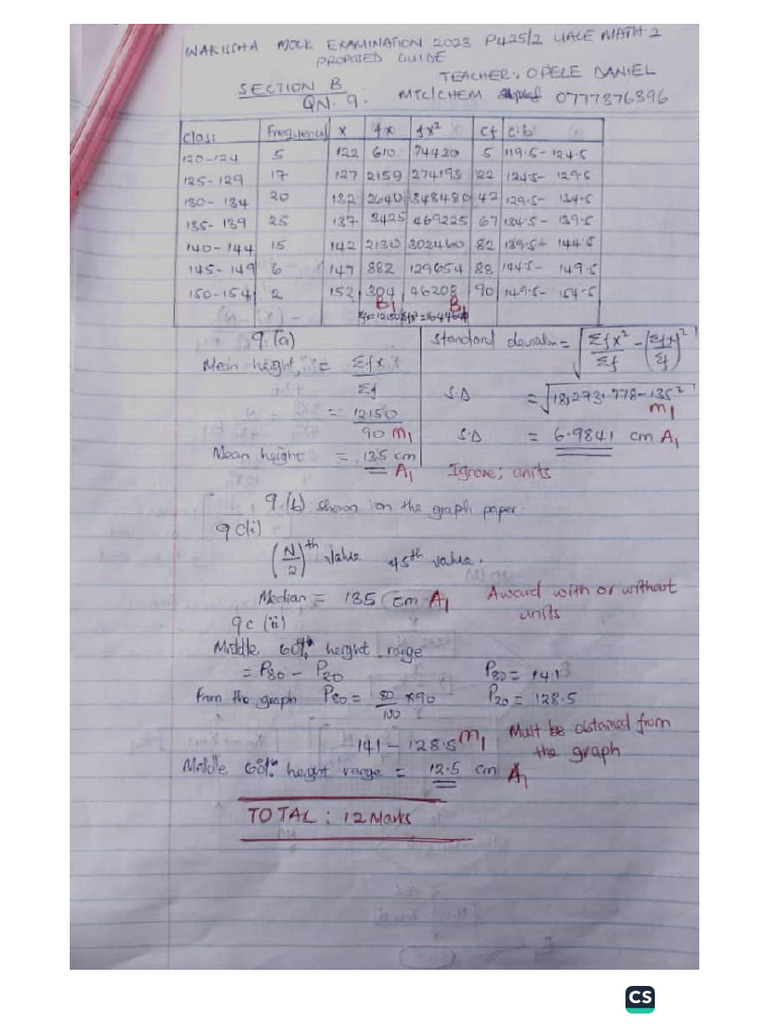 WAKISSHA MOCK EXAMINATION 2023 P425/2 UACE MATH 2
PROPOSED GUIDE
TEACHER: OPELE DANIEL
SECTION B
QN. 9.
MTC/CHEM 0777376396
Class Frequency x fx fx² Cf c.b
120-124 5 122 610 74420 5 119.5- 124.5
125-129 17 127 2159 274193 22 124.5- 129.5
130- 134 20 132 2640 348480 42 129.5- 134.5
135- 139 25 137 3425 469225 67 134.5 - 139.5
140-144 15 142 2130 302460 82 139.5- 144.5
145- 149 6 147 882 129654 88 144.5- 149.5
150-154 2 152 304 46208 90 149.5- 154.5
B1 B1
Σfx=12150 Σfx²=1644640
9.(a)
Mean height, = Σfx
Σf
= 12150
90 M1
Mean height = 135 cm
A1
Standard deviation = √ Σfx²/Σf - (Σfx/Σf)²
S.D = √18,273.778-135²
M1
S.D = 6.9841 cm A1
Ignore; units
9.(b) shown on the graph paper.
9 c(i)
(N/2)th Value 45th value.
Median = 135 cm A1 Award with or without
units
9c (ii)
Middle 60% height range
= P80 - P20 P80 = 141
From the graph P80 = 80/100 x90 P20 = 128.5
141 - 128.5 M1 Must be obtained from
the graph
Middle 60% height range = 12.5 cm A1
TOTAL: 12 Marks
CS